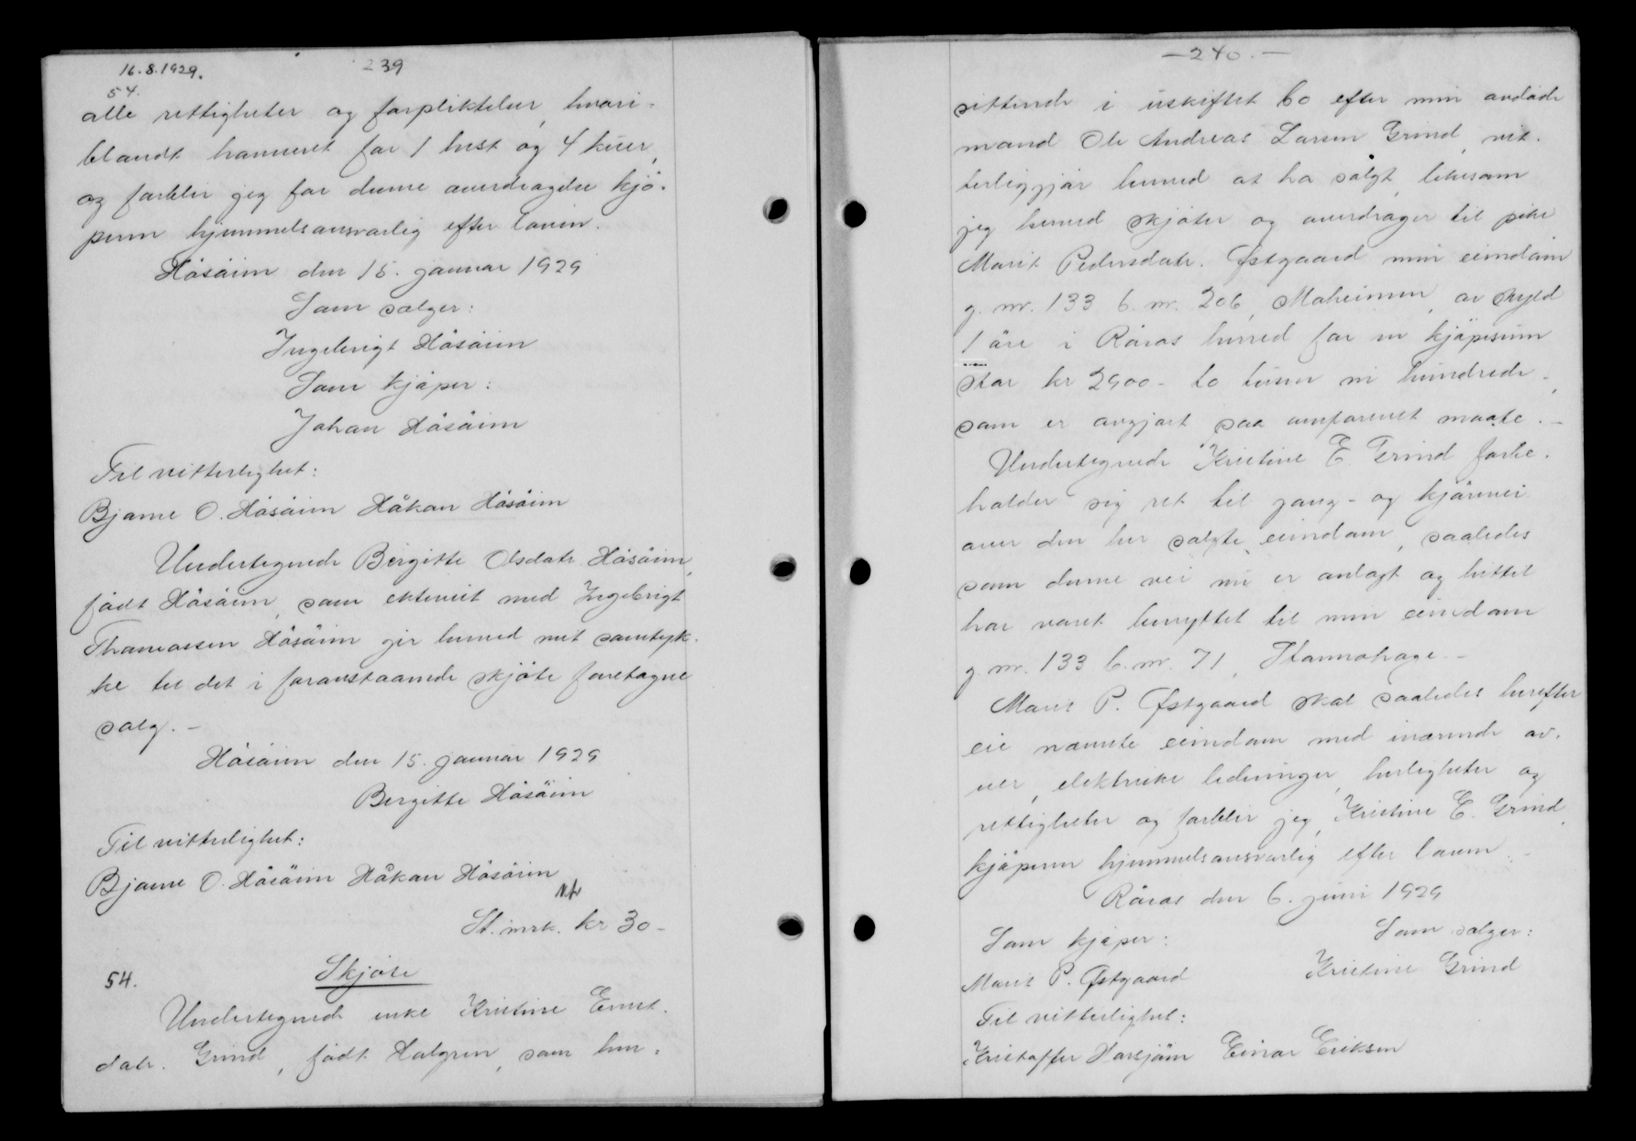 16.8.1929.
239
54.
alle rettigheter og forpliktelser, hvori-
blandt havneret for 1 hest og 4 kuer,
og forblir jeg for denne overdragelse kjø-
peren hjemmelsansvarlig efter loven.
Håsåien den 15. januar 1929
Som sælger:
Ingebrigt Håsåien
Som kjøper:
Johan Håsåien
Til vitterlighet:
Bjarne O. Håsåien Håkon Håsåien
Undertegnede Bergitte Olsdatr. Håsåien,
født Håsåien, som ektevut med Ingebrigt
Thomassen Håsåien gir herved mit samtyk-
ke til det i foranstaaende skjøte foretagne
salg. -
Håsåien den 15. januar 1929
Bergitte Håsåien
Til vitterlighet:
Bjarne O. Håsåien Håkon Håsåien
St. mrk. kr 30 -
54.
Skjøte
Undertegnede enke Kristine Ernst-
datr. Grind, født Holgren, som hen-
- 240. -
sittende i uskiftet bo efter min avdøde
mand Ole Andreas Larsen Grind, vit-
terliggjør herved at ha solgt, likesom
jeg herved skjøter og overdrager til pike
Marit Pedersdatr. Østgaard min eiendom
g. nr. 133 b. nr. 206, Moheimen, av skyld
1 øre i Røros herred for en kjøpesum
stor kr 2900 - to tusen ni hundrede -,
som er avgjort paa omforenet maate. -
Undertegnede Kristine E. Grind forbe-
holder sig ret til gang- og kjørevei
over den her solgte eiendom, saaledes
som denne vei nu er anlagt og hittil
har været benyttet til min eiendom
g. nr. 133 b. nr. 71, Stamohage -
Marit P. Østgaard skal saaledes herefter
eie nævnte eiendom med iværende ov-
ner, elektriske ledninger, herligheter og
rettigheter og forblir jeg, Kristine E. Grind,
kjøperen hjemmelsansvarlig efter loven. -
Røros den 6. juni 1929
Som kjøper: Som sælger:
Marit P. Østgaard Kristine Grind
Til vitterlighet:
Kristoffer Harsjøen Einar Eriksen